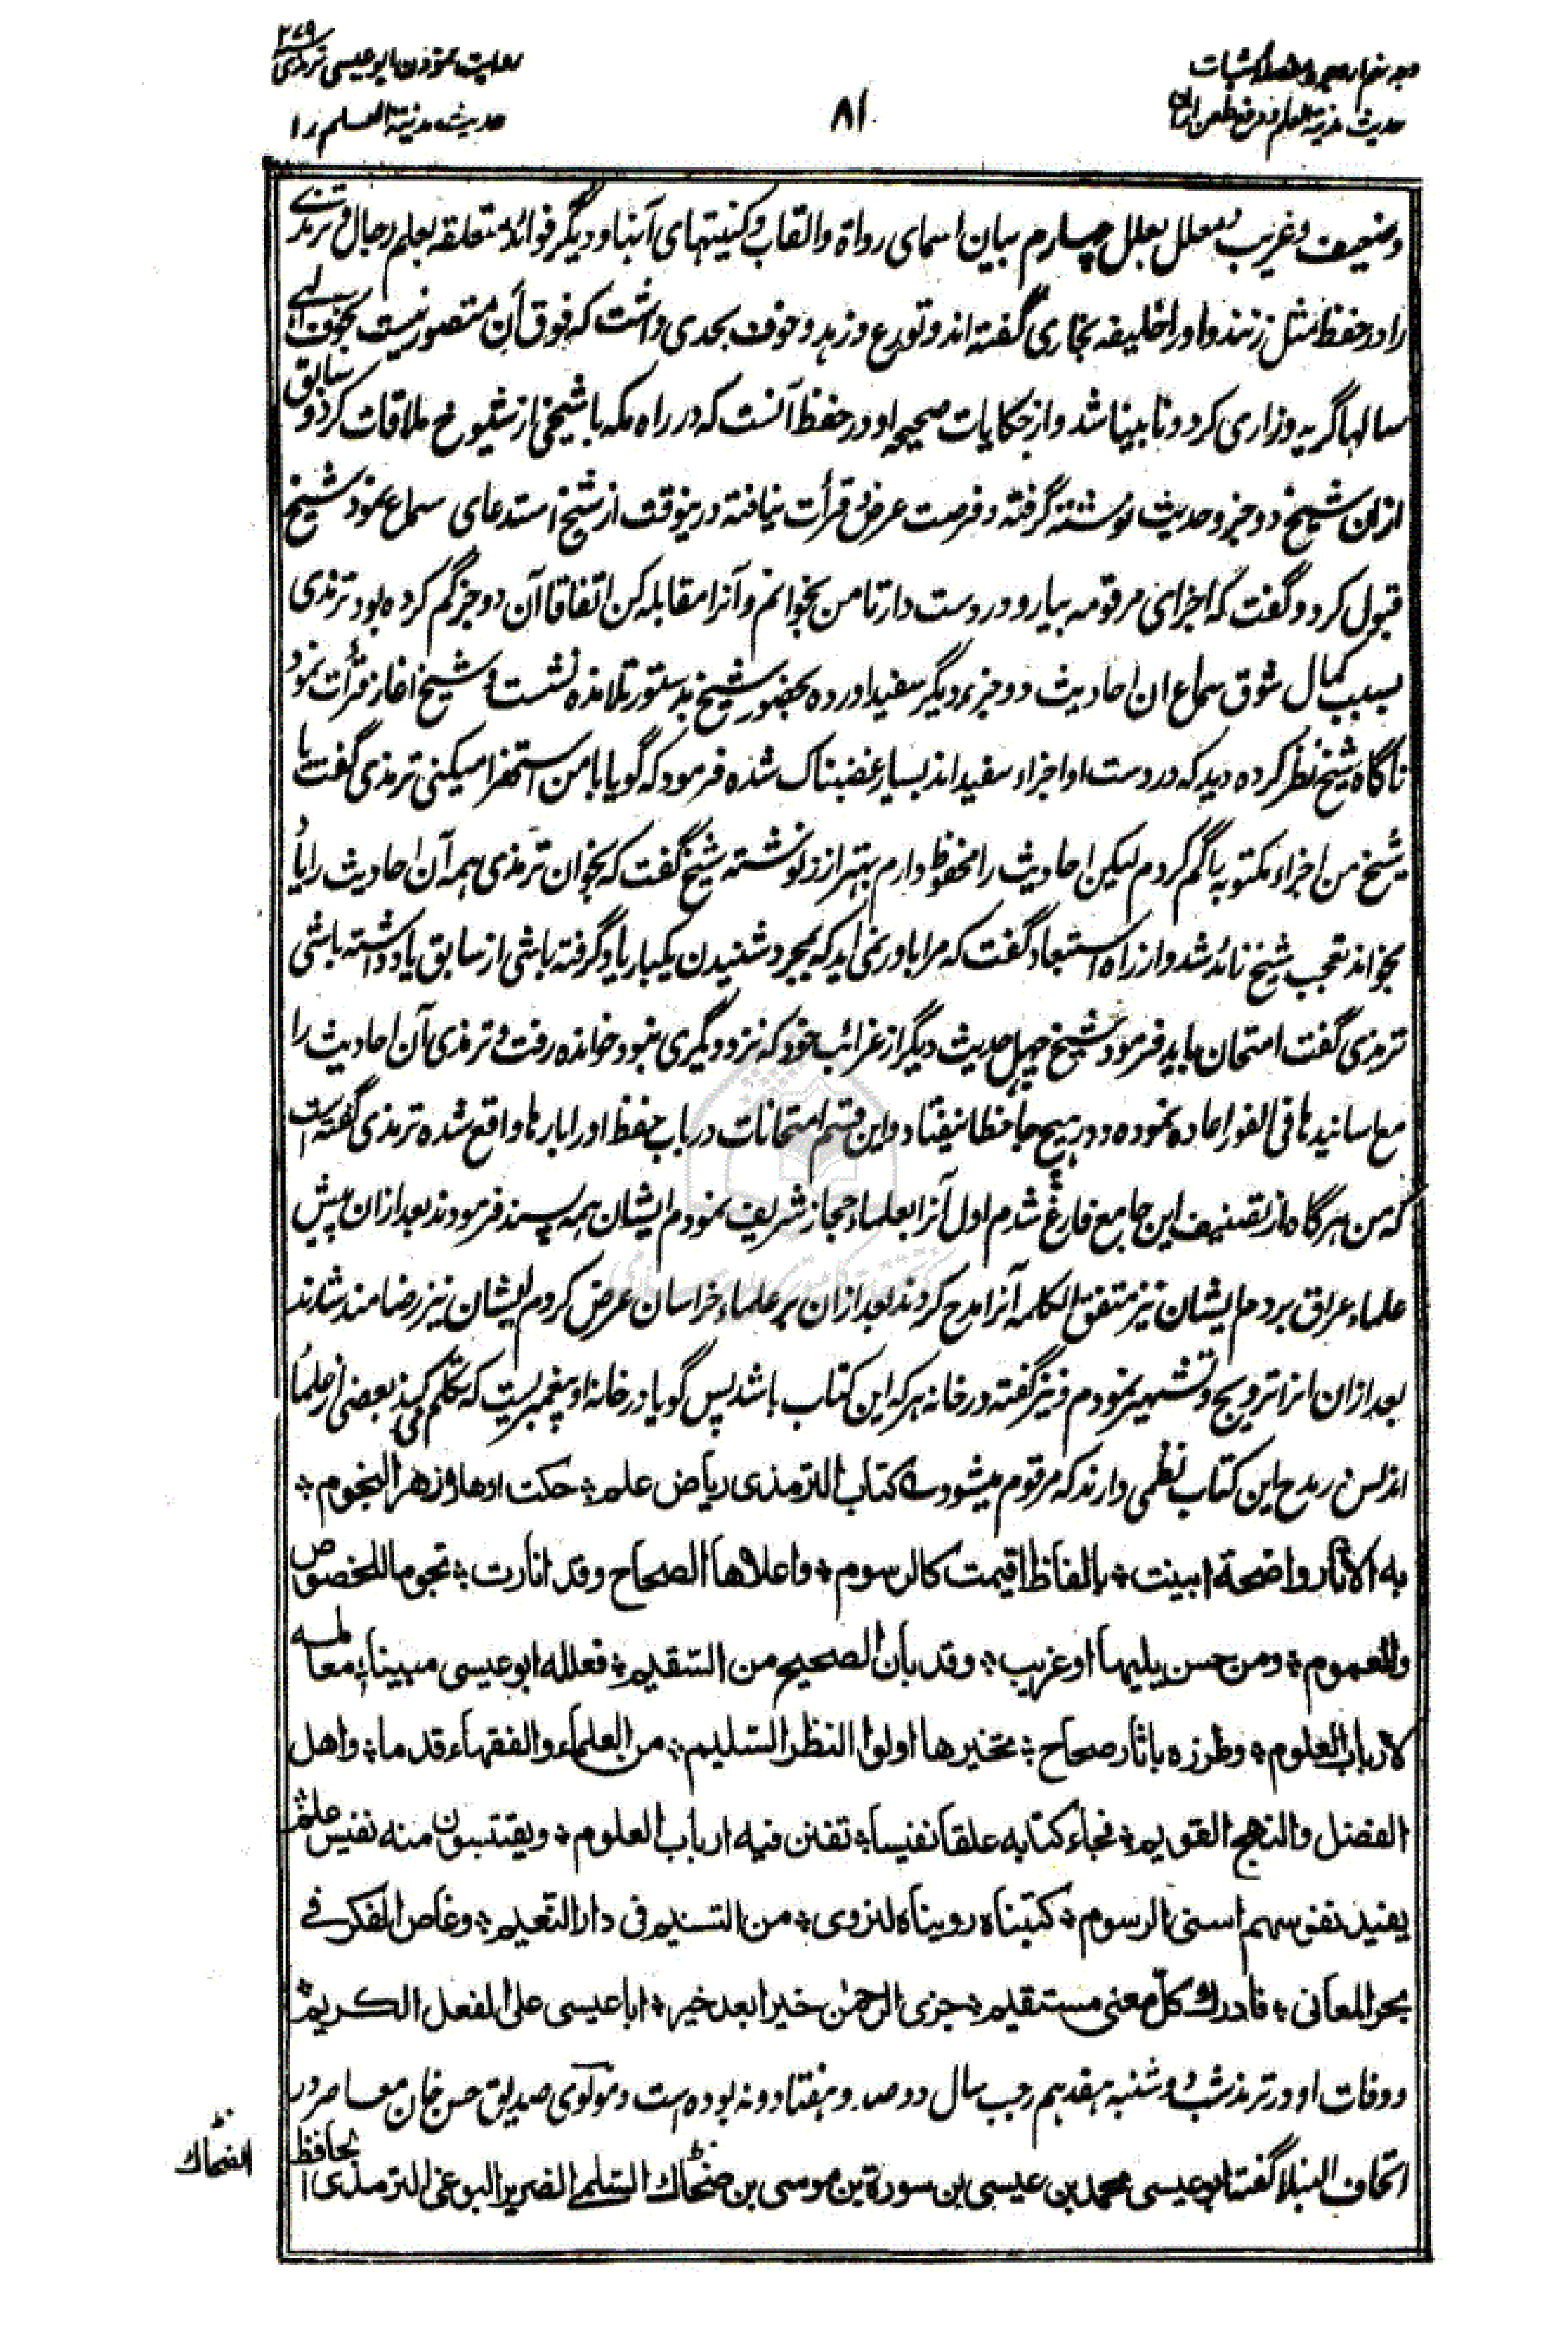 وجه پنجاه و
روایت نمودن ابو عیسی ترمذی ۲۷۹
حدیث مدینة العلم را
۸۱
وضعیف وغریب ومعلل بعلل چهارم بیان اسمای رواة والقاب وکنیتهای آنها ودیگر فوائد متعلقه بعلم رجال وترمذی
را در حفظ مثل زنند واو را خلیفه بخاری گفته اند وتورع وزهد وخوف بحدی داشت که فوق آن متصور نیست بخوف الهی
سالها گریه وزاری کرد ونابینا شد واز حکایات صحیحه او در حفظ آنست که در راه مکه با شیخی از شیوخ ملاقات کرد و سابق
ازان شیخ دو جزو حدیث نوشته گرفته وفرصت عرض وقرأت نیافته درینوقت از شیخ استدعای سماع نمود شیخ
قبول کرد وگفت که اجزای مرقومه بیار ودر دست دار تا من بخوانم وآنرا مقابله کن اتفاقا آن دو جز گم کرده بود ترمذی
بسبب کمال شوق سماع ان احادیث دو جزو دیگر سفید اورده بحضور شیخ بدستور تلامذه نشست و شیخ اغاز قرأت نمود
ناگاه شیخ نظر کرده دید که در دست او اجزاء سفید اند بسیار غضبناک شده فرمود که گویا با من استهزا میکنی ترمذی گفت یا
شیخ من اجزاء مکتوبه را گم کردم لیکن احادیث را محفوظ دارم بهتر از نوشته شیخ گفت که بخوان ترمذی همه آن احادیث را یاد
بخواند تعجب شیخ زائد شد واز راه استبعاد گفت که مرا باور نمی اید که بمجرد شنیدن یکبار یاد گرفته باشی از سابق یاد داشته باشی
ترمذی گفت امتحان باید فرمود شیخ چهل حدیث دیگر از غرائب خود که نزد دیگری نبود خوانده رفت و ترمذی آن احادیث را
مع اسانیدها فی الفور اعاده نموده ودر هیچ جا خطا نیفتاد واین قسم امتحانات در باب حفظ او را بارها واقع شده ترمذی گفته است
که من هرگاه از تصنیف این جامع فارغ شدم اول آنرا بعلماء حجاز شریف نمودم ایشان همه پسند فرمودند بعد ازان پیش
علماء عراق بردم ایشان نیز متفق الکلمه آنرا مدح کردند بعد ازان بر علماء خراسان عرض کردم ایشان نیز رضامند شدند
بعد ازان انرا ترویج وتشهیر نمودم ونیز گفته در خانه هرکه این کتاب باشد پس گویا در خانه او پیغمبریست که تکلم می کند بعضی از علماء
اندلس در مدح این کتاب نظمی دارند که مرقوم میشود کتاب الترمذی ریاض علم * حکت ازهاره زهر النجوم *
به الآثار واضحة ابینت * بالفاظ اقیمت کالرسوم * واعلاها الصحاح وقد انارت * نجوما للخصوص
والعموم * ومن حسن یلیها او غریب * وقد بان الصحیح من السقیم * فعلله ابو عیسی مبینا * معالمه
لارباب العلوم * وطرزه باثار صحاح * تخیرها اولوا النظر السلیم * من العلماء والفقهاء قدما * واهل
الفضل والنهج القویم * فجاء کتابه علقا نفیسا * تفنن فیه ارباب العلوم * ویقتبسون منه نفیس علم *
یفید نفوسهم اسنی الرسوم * کتبناه رویناه لنروی * من التسنیم فی دار النعیم * وغاص الفکر فی
بحر المعانی * فادرک کل معنی مستقیم * جزی الرحمن خیرا بعد خیر * ابا عیسی علی الفعل الکریم *
ووفات او در ترمذ شب دوشنبه هفدهم رجب سال دو صد وهفتاد ونه بوده است ومولوی صدیق حسن خان معاصر در
اتحاف النبلا گفته ابو عیسی محمد بن عیسی بن سورة بن موسی بن ضحاک السلمی الضریر البوغی الترمذی الحافظ
الضحاک